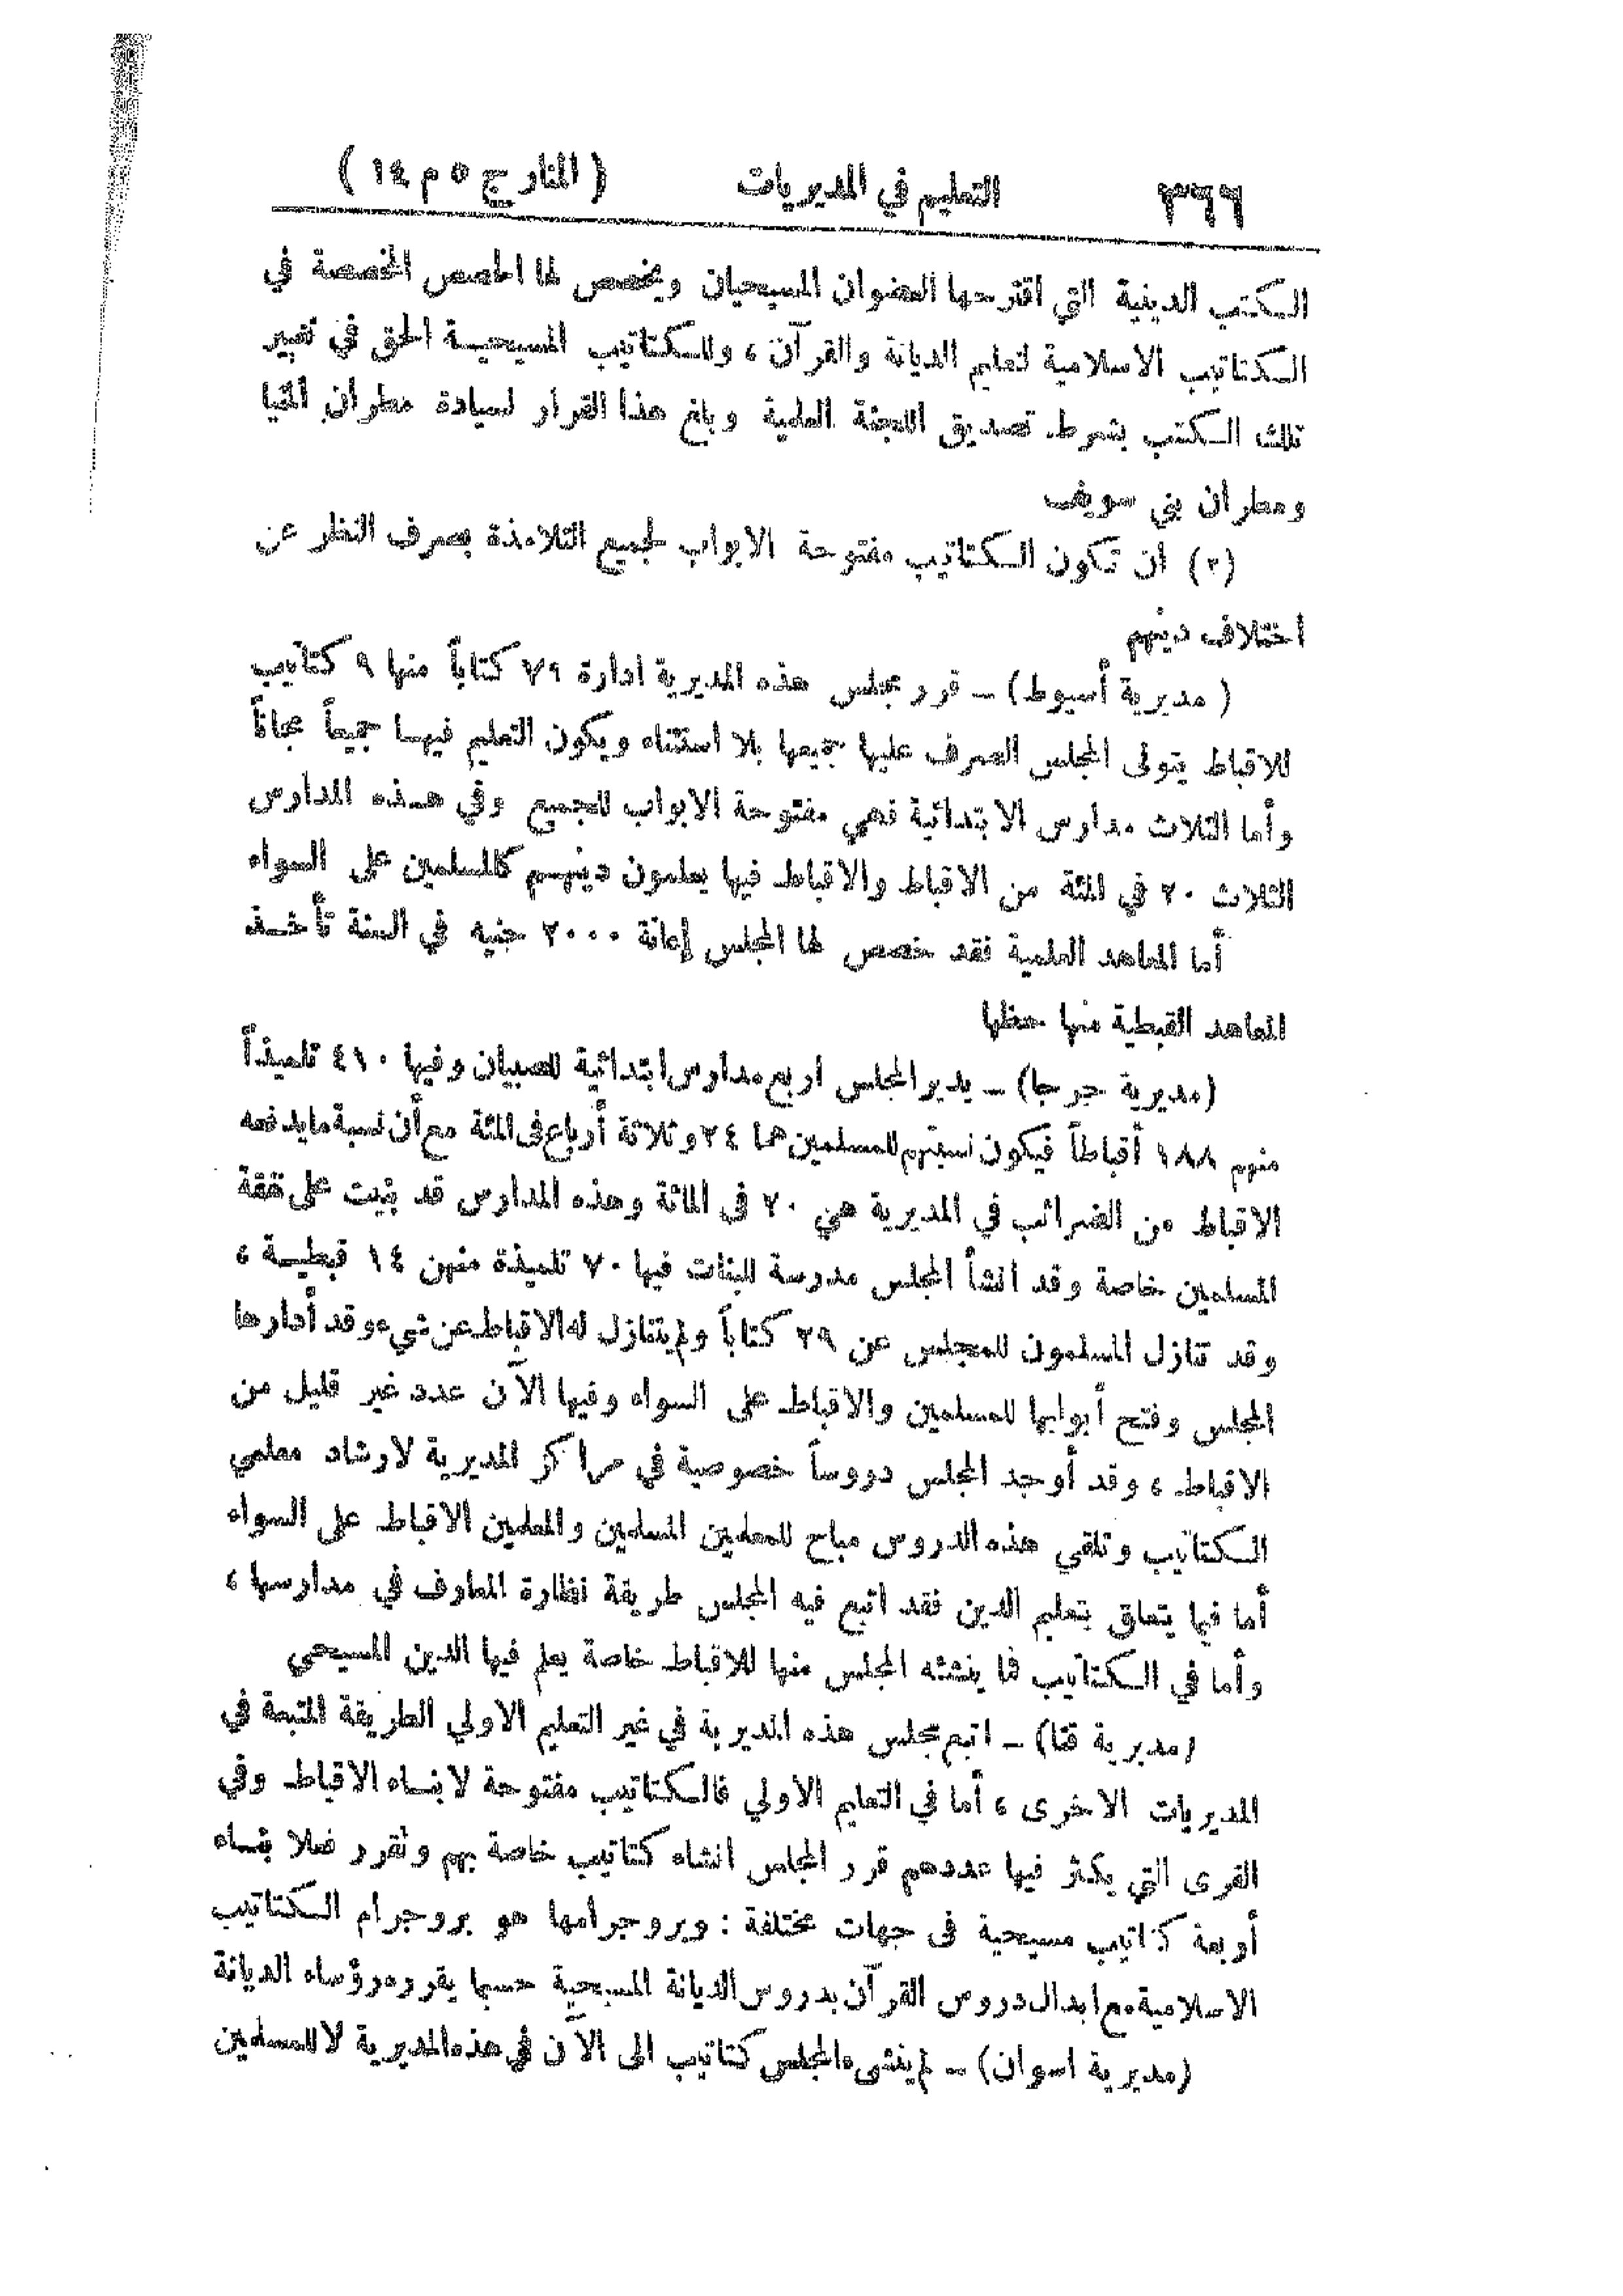 ٣٦٦ التعليم في المديريات ( المنار ج ٥ م ١٤ )
الكتب الدينية التي اقترحها العضوان المسيحيان ويخصص لها الحصص المخصصة في
الكتاتيب الاسلامية لتعليم الديانة والقرآن ، وللكتاتيب المسيحية الحق في تغيير
تلك الكتب بشرط تصديق اللجنة العلمية وبلغ هذا القرار لسيادة مطران المنيا
ومطران بني سويف
(٣) ان تكون الكتاتيب مفتوحة الابواب لجميع التلامذة بصرف النظر عن
اختلاف دينهم
( مديرية أسيوط) – قرر مجلس هذه المديرية ادارة ٧٩ كتاباً منها ٩ كتاتيب
للاقباط يتولى المجلس الصرف عليها جميعها بلا استثناء ويكون التعليم فيها جميعاً مجاناً
وأما الثلاث مدارس الابتدائية فهي مفتوحة الابواب للجميع وفي هذه المدارس
الثلاث ٢٠ في المئة من الاقباط والاقباط فيها يعلمون دينهم كالمسلمين على السواء
أما المعاهد العلمية فقد خصص لها المجلس إعانة ٢٠٠٠ جنيه في السنة تأخذ
المعاهد القبطية منها حظها
(مديرية جرجا) – يدير المجلس اربع مدارس ابتدائية للصبيان وفيها ٤١٠ تلميذاً
منهم ١٨٨ أقباطاً فيكون نسبتهم للمسلمين هما ٢٤ وثلاثة أرباع فى المئة مع أن نسبة مايدفعه
الاقباط من الضرائب في المديرية هي ٢٠ فى المائة وهذه المدارس قد بنيت على نفقة
المسلمين خاصة وقد انشأ المجلس مدرسة للبنات فيها ٧٠ تلميذة منهن ١٤ قبطية ،
وقد تنازل المسلمون للمجلس عن ٢٩ كتاباً ولم يتنازل له الاقباط عن شيء وقد أدارها
المجلس وفتح أبوابها للمسلمين والاقباط على السواء وفيها الآن عدد غير قليل من
الاقباط ، وقد أوجد المجلس دروساً خصوصية في مراكز المديرية لارشاد معلمي
الكتاتيب وتلقي هذه الدروس مباح للمعلمين المسلمين والمعلمين الاقباط على السواء
أما فيما يتعلق بتعليم الدين فقد اتبع فيه المجلس طريقة نظارة المعارف في مدارسها ،
وأما في الكتاتيب فما ينشئه المجلس منها للاقباط خاصة يعلم فيها الدين المسيحي
(مديرية قنا) – اتبع مجلس هذه المديرية في غير التعليم الاولي الطريقة المتبعة في
المديريات الاخرى ، أما في التعليم الاولي فالكتاتيب مفتوحة لابناء الاقباط وفي
القرى التي يكثر فيها عددهم قرر المجلس انشاء كتاتيب خاصة بهم وتقرر فعلا بناء
أربعة كتاتيب مسيحية فى جهات مختلفة : وبروجرامها هو بروجرام الكتاتيب
الاسلامية مع ابدال دروس القرآن بدروس الديانة المسيحية حسبما يقرره رؤساء الديانة
(مديرية اسوان) – لم ينشىء المجلس كتاتيب الى الآن في هذه المديرية لا للمسلمين